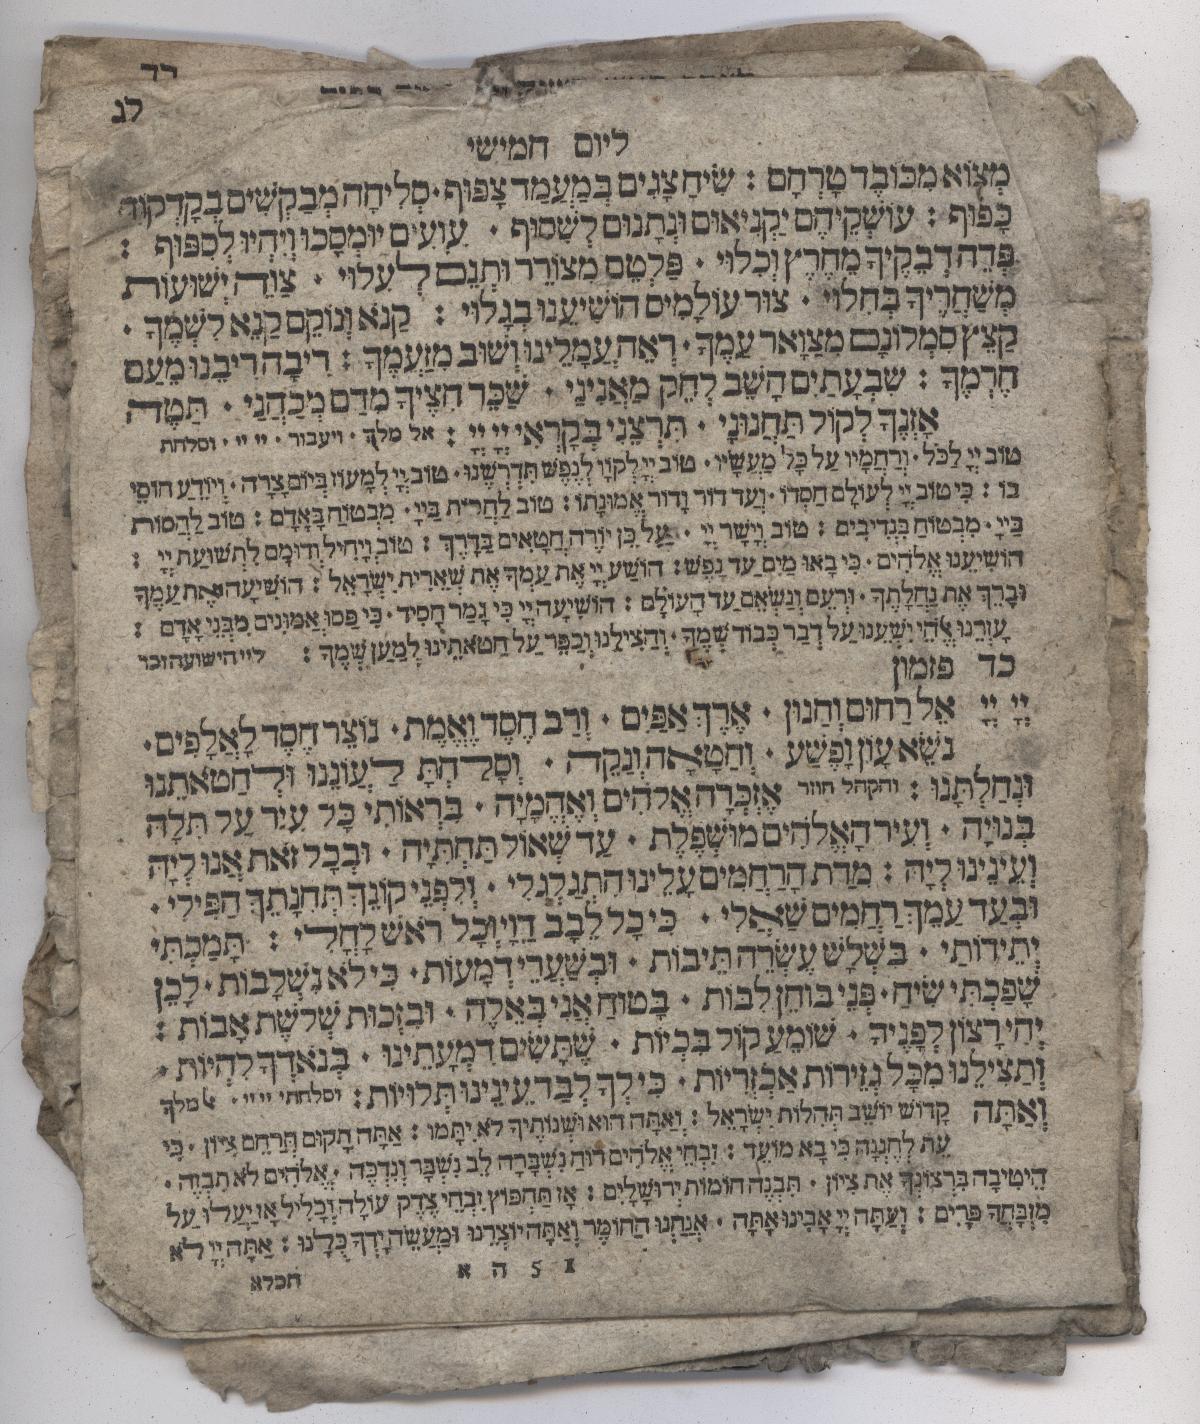 לג
ליום חמישי
מְצוֹא מִכּוֹבֶד טָרְחָם : שִׂיחַ צָגִים בְּמַעֲמַד צָפוּף · סְלִיחָה מְבַקְשִׁים בְּקָדְקוֹד
כָּפוּף : עוֹשְׁקֵיהֶם יַקְנִיאוּם וּנְתָנוּם לְשִׁסּוּף · עִוְעִים יוּמְסָכוּ וְיִהְיוּ לְסִפּוּף :
פְּדֵה דְבֵקֶיךָ מֵחֶרֶץ וְכִלּוּי · פַּלְּטֵם מִצּוֹרֵר וּתְנֵם לְעִלּוּי · צַוֵּה יְשׁוּעוֹת
מְשַׁחֲרֶיךָ בְּחִלּוּי · צוּר עוֹלָמִים הוֹשִׁיעֵנוּ בְּגָלוּי : קַנֹּא וְנוֹקֵם קַנֵּא לִשְׁמֶךָ ·
קַצֵּץ סִמְלוֹנָם מִצַּוָּאר עַמֶּךָ · רְאֵה עֲמָלֵינוּ וְשׁוּב מִזַּעְמֶךָ : רִיבָה רִיבֵנוּ מֵעַם
חֶרְמֶךָ : שִׁבְעָתַיִם הָשֵׁב לְחֵק מְאַנִּינַי · שַׁכֵּר חִצֶּיךָ מִדַּם מְכַהֲנַי · תַּטֶּה
אָזְנְךָ לְקוֹל תַּחֲנוּנָי · תִּרְצֵנִי בְּקָרְאִי יְיָ יְיָ : אל מלך · ויעבור · יי יי · וסלחת
טוֹב יְיָ לַכֹּל · וְרַחֲמָיו עַל כָּל מַעֲשָׂיו · טוֹב יְיָ לְקוָֹו לְנֶפֶשׁ תִּדְרְשֶׁנּוּ · טוֹב יְיָ לְמָעוֹז בְּיוֹם צָרָה · וְיוֹדֵעַ חוֹסֵי
בוֹ : כִּי טוֹב יְיָ לְעוֹלָם חַסְדּוֹ · וְעַד דּוֹר וָדוֹר אֱמוּנָתוֹ : טוֹב לַחֲסוֹת בַּיְיָ · מִבְּטוֹחַ בָּאָדָם : טוֹב לַחֲסוֹת
בַּיְיָ · מִבְּטוֹחַ בִּנְדִיבִים : טוֹב וְיָשָׁר יְיָ · עַל כֵּן יוֹרֶה חַטָּאִים בַּדָּרֶךְ : טוֹב וְיָחִיל וְדוּמָם לִתְשׁוּעַת יְיָ :
הוֹשִׁיעֵנוּ אֱלֹהִים · כִּי בָאוּ מַיִם עַד נָפֶשׁ : הוֹשַׁע יְיָ אֶת עַמְּךָ אֵת שְׁאֵרִית יִשְׂרָאֵל : הוֹשִׁיעָה אֶת עַמֶּךָ
וּבָרֵךְ אֶת נַחֲלָתֶךָ · וּרְעֵם וְנַשְּׂאֵם עַד הָעוֹלָם : הוֹשִׁיעָה יְיָ כִּי גָמַר חָסִיד · כִּי פַסּוּ אֱמוּנִים מִבְּנֵי אָדָם :
עָזְרֵנוּ אֱלֹהֵי יִשְׁעֵנוּ עַל דְּבַר כְּבוֹד שְׁמֶךָ · וְהַצִּילֵנוּ וְכַפֵּר עַל חַטֹּאתֵינוּ לְמַעַן שְׁמֶךָ : לייי הישועה וכו
כד פזמון
יְיָ יְיָ אֵל רַחוּם וְחַנּוּן · אֶרֶךְ אַפַּיִם · וְרַב חֶסֶד וֶאֱמֶת · נוֹצֵר חֶסֶד לָאֲלָפִים ·
נֹשֵׂא עָוֹן וָפֶשַׁע · וְחַטָּאָה וְנַקֵּה · וְסָלַחְתָּ לַעֲוֹנֵנוּ וּלְחַטֹּאתֵנוּ
וּנְחַלְתָּנוּ : והקהל חוזר אֶזְכְּרָה אֱלֹהִים וְאֶהֱמָיָה · בִּרְאוֹתִי כָּל עִיר עַל תִּלָּהּ
בְּנוּיָה · וְעִיר הָאֱלֹהִים מוּשְׁפֶּלֶת · עַד שְׁאוֹל תַּחְתִּיָּה · וּבְכָל זֹאת אָנוּ לְיָהּ
וְעֵינֵינוּ לְיָהּ : מִדַּת הָרַחֲמִים עָלֵינוּ הִתְגַּלְגְּלִי · וְלִפְנֵי קוֹנֵךְ תְּחִנָּתֵךְ הַפִּילִי ·
וּבְעַד עַמֵּךְ רַחֲמִים שַׁאֲלִי · כִּי כָל לֵבָב דַּוָּי וְכָל רֹאשׁ לָחֳלִי : תָּמַכְתִּי
יְתֵידוֹתַי · בִּשְׁלֹשׁ עֶשְׂרֵה תֵיבוֹת · וּבְשַׁעֲרֵי דְמָעוֹת · כִּי לֹא נִשְׁלָבוֹת · לָכֵן
שָׁפַכְתִּי שִׂיחַ · פְּנֵי בּוֹחֵן לִבּוֹת · בָּטוּחַ אֲנִי בְּאֵלֶּה · וּבִזְכוּת שְׁלֹשֶׁת אָבוֹת :
יְהִי רָצוֹן לְפָנֶיךָ · שׁוֹמֵעַ קוֹל בְּכִיּוֹת · שֶׁתָּשִׂים דִּמְעָתֵינוּ · בְּנֹאדְךָ לִהְיוֹת ·
וְתַצִּילֵנוּ מִכָּל גְּזֵירוֹת אַכְזָרִיּוֹת · כִּי לְךָ לְבַד עֵינֵינוּ תְּלוּיוֹת : וסלחתי יי יי · אל מלך
וְאַתָּה קָדוֹשׁ יוֹשֵׁב תְּהִלּוֹת יִשְׂרָאֵל : וְאַתָּה הוּא וּשְׁנוֹתֶיךָ לֹא יִתָּמּוּ : אַתָּה תָקוּם תְּרַחֵם צִיּוֹן · כִּי
עֵת לְחֶנְנָהּ כִּי בָא מוֹעֵד : זִבְחֵי אֱלֹהִים רוּחַ נִשְׁבָּרָה לֵב נִשְׁבָּר וְנִדְכֶּה · אֱלֹהִים לֹא תִבְזֶה ·
הֵיטִיבָה בִרְצוֹנְךָ אֶת צִיּוֹן · תִּבְנֶה חוֹמוֹת יְרוּשָׁלָיִם : אָז תַּחְפּוֹץ זִבְחֵי צֶדֶק עוֹלָה וְכָלִיל אָז יַעֲלוּ עַל
מִזְבַּחֲךָ פָּרִים : וְעַתָּה יְיָ אָבִינוּ אָתָּה · אֲנַחְנוּ הַחוֹמֶר וְאַתָּה יוֹצְרֵנוּ וּמַעֲשֵׂה יָדְךָ כֻּלָּנוּ : אַתָּה יְיָ לֹא
א ה 5 ב
תכלא